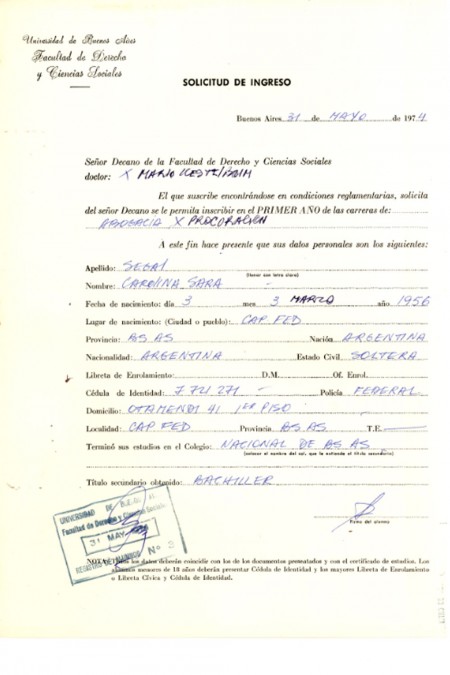 Universidad de Buenos Aires
Facultad de Derecho
y Ciencias Sociales
SOLICITUD DE INGRESO
Buenos Aires 31 de MAYO de 1974
Señor Decano de la Facultad de Derecho y Ciencias Sociales
doctor: X MARIO
El que suscribe encontrándose en condiciones reglamentarias, solicita
del señor Decano se le permita inscribir en el PRIMER AÑO de las carreras de:
ABOGACIA X PROCURACION
A este fin hace presente que sus datos personales son los siguientes:
Apellido: SEGAL
(llenar con letra clara)
Nombre: CAROLINA SARA
Fecha de nacimiento: día 3 mes 3 MARZO año 1956
Lugar de nacimiento: (Ciudad o pueblo): CAP. FED
Provincia: BS. AS Nación ARGENTINA
Nacionalidad: ARGENTINA Estado Civil SOLTERA
Libreta de Enrolamiento: D.M. Of. Enrol.
Cédula de Identidad: 7 721 271 - Policía FEDERAL
Domicilio: OTAMENDI 41 1er PISO
Localidad: CAP FED Provincia BS. AS T.E.
Terminó sus estudios en el Colegio: NACIONAL DE BS AS
Título secundario obtenido: BACHILLER
Firma del alumno
UNIVERSIDAD DE
Facultad de Derecho y Ciencias Sociales
31 MAY
NOTA: los datos deberán coincidir con los de los documentos presentados y con el certificado de estudios. Los
menores de 18 años deberán presentar Cédula de Identidad y los mayores Libreta de Enrolamiento
o Libreta Cívica y Cédula de Identidad.